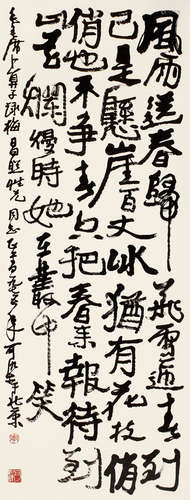 風雨送春歸飛雪迎春到
已是懸崖百丈冰猶有花枝俏
俏也不争春只把春来報待到
山花爛漫時她在叢中笑
毛主席卜算子詠梅 同志 可染 北京